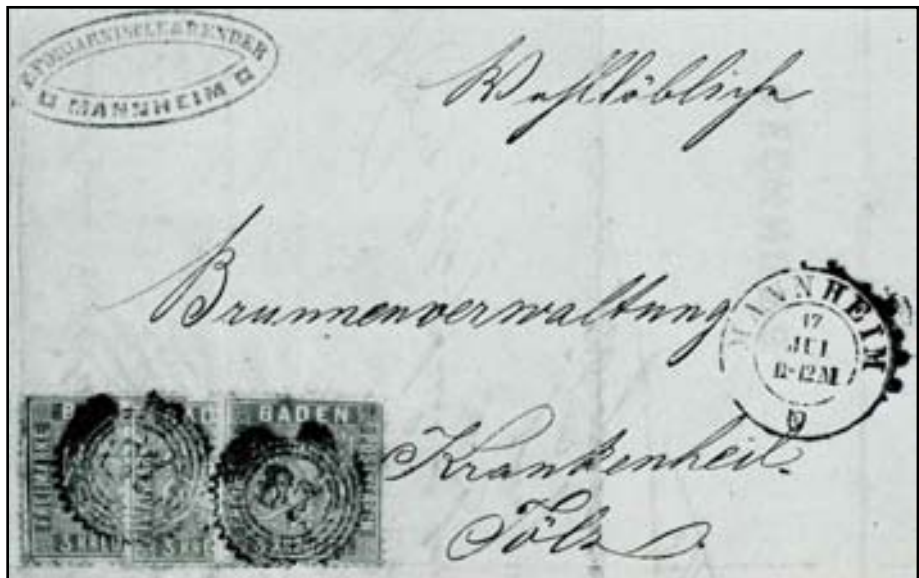 & BENDER
MANNHEIM
Wohllöbliche
Brunnenverwaltung
MANNHEIM
17
JUL
11-12 M.
Krankenheil-
Tölz.
BADEN
87